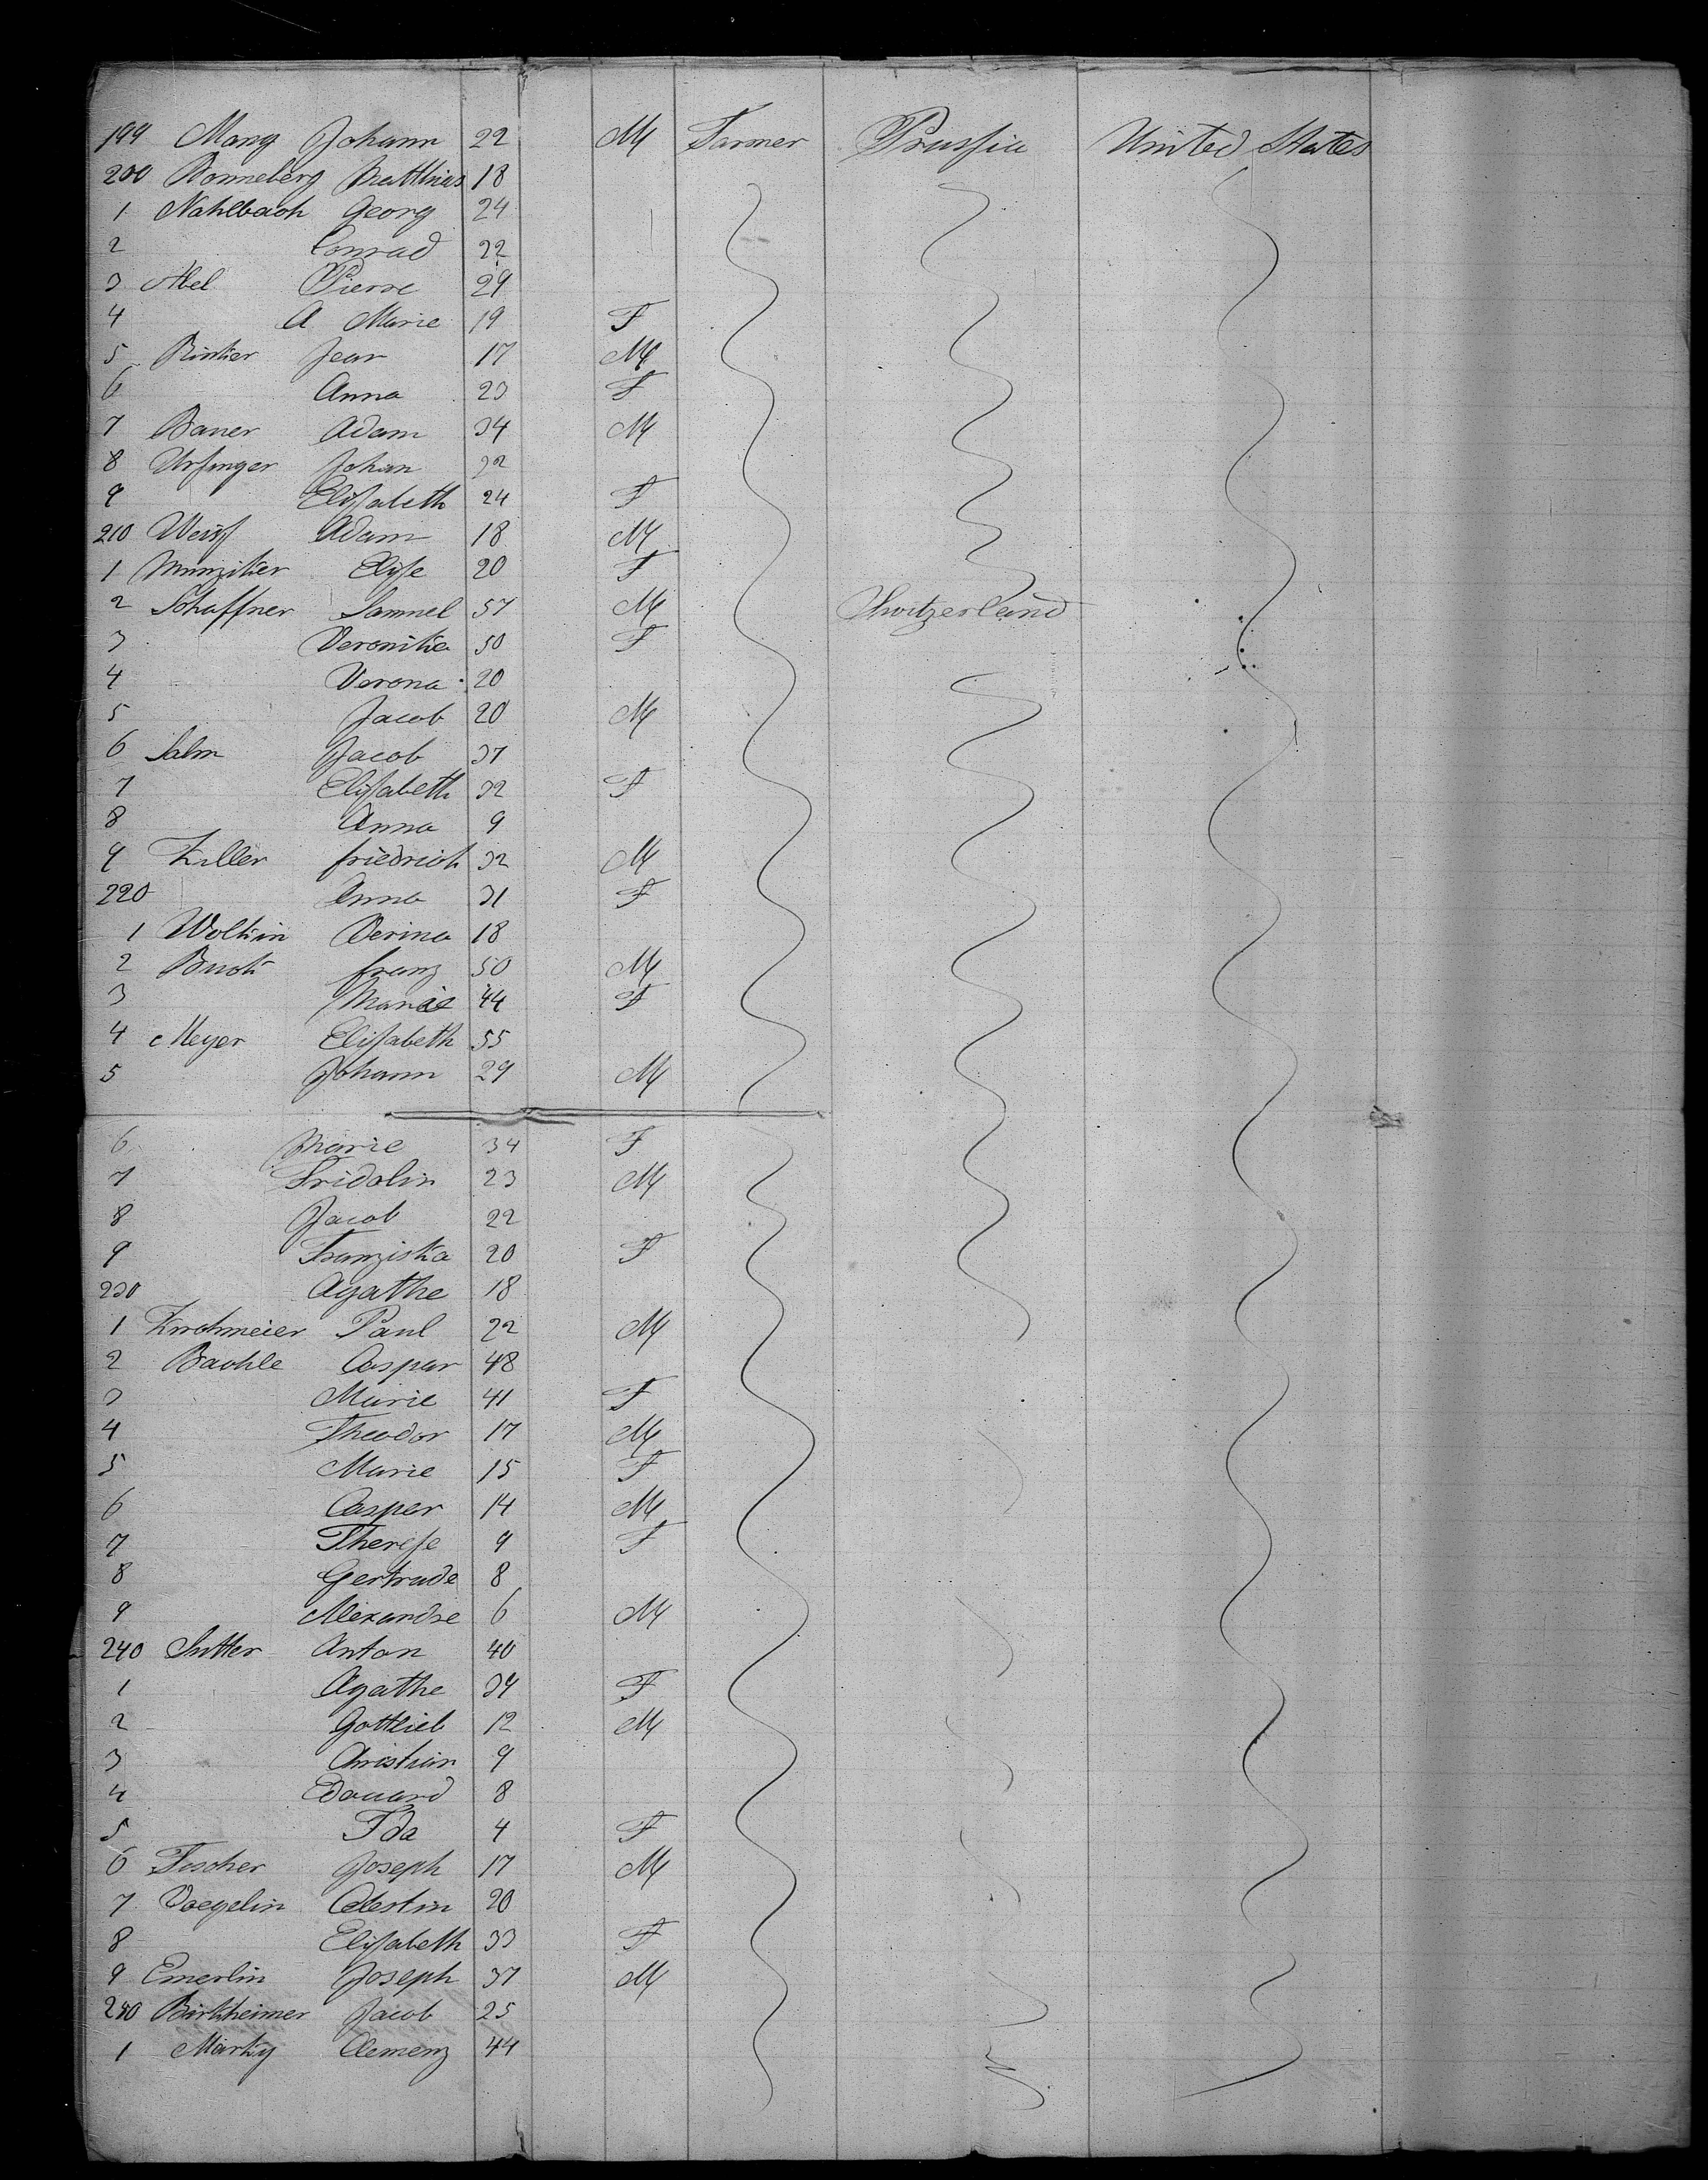 199 Mang Johann 22 M Farmer Prussia United States
200 Bonneberg Matthias 18
1 Nahlbach Georg 24
2 Conrad 22
3 Abel Pierre 29
4 A Marie 19 F
5 Rinker Jean 17 M
6 Anna 23 F
7 Bauer Adam 34 M
8 Urfinger Johan 32
9 Elisabeth 24 F
210 Weiss Adam 18 M
1 Munziker Elise 20 F
2 Schaffner Samuel 57 M Switzerland
3 Veronika 50 F
4 Verona 20
5 Jacob 20 M
6 Salm Jacob 37
7 Elisabeth 32 F
8 Anna 9
9 Keller friedrich 32 M
220 Anna 31 F
1 Wolkin Verina 18
2 franz 50 M
3 Marie 44 F
4 Meyer Elisabeth 55
5 Johann 29 M
6 Marie 34 F
7 Fridolin 23 M
8 Jacob 22
9 Franziska 20 F
230 Agathe 18
1 Kirchmeier Paul 22 M
2 Bachle Caspar 48
3 Marie 41 F
4 Theodor 17 M
5 Marie 15 F
6 Casper 14 M
7 Therese 9 F
8 Gertrude 8
9 Alexandre 6 M
240 Sutter Anton 40
1 Agathe 34 F
2 Gottlieb 12 M
3 Christian 9
4 Edouard 8
5 Ida 4 F
6 Fischer Joseph 17 M
7 Voegelin Celestin 20
8 Elisabeth 33 F
9 Emerlin Joseph 37 M
250 Birkheimer Jacob 25
1 Marky Clemenz 44